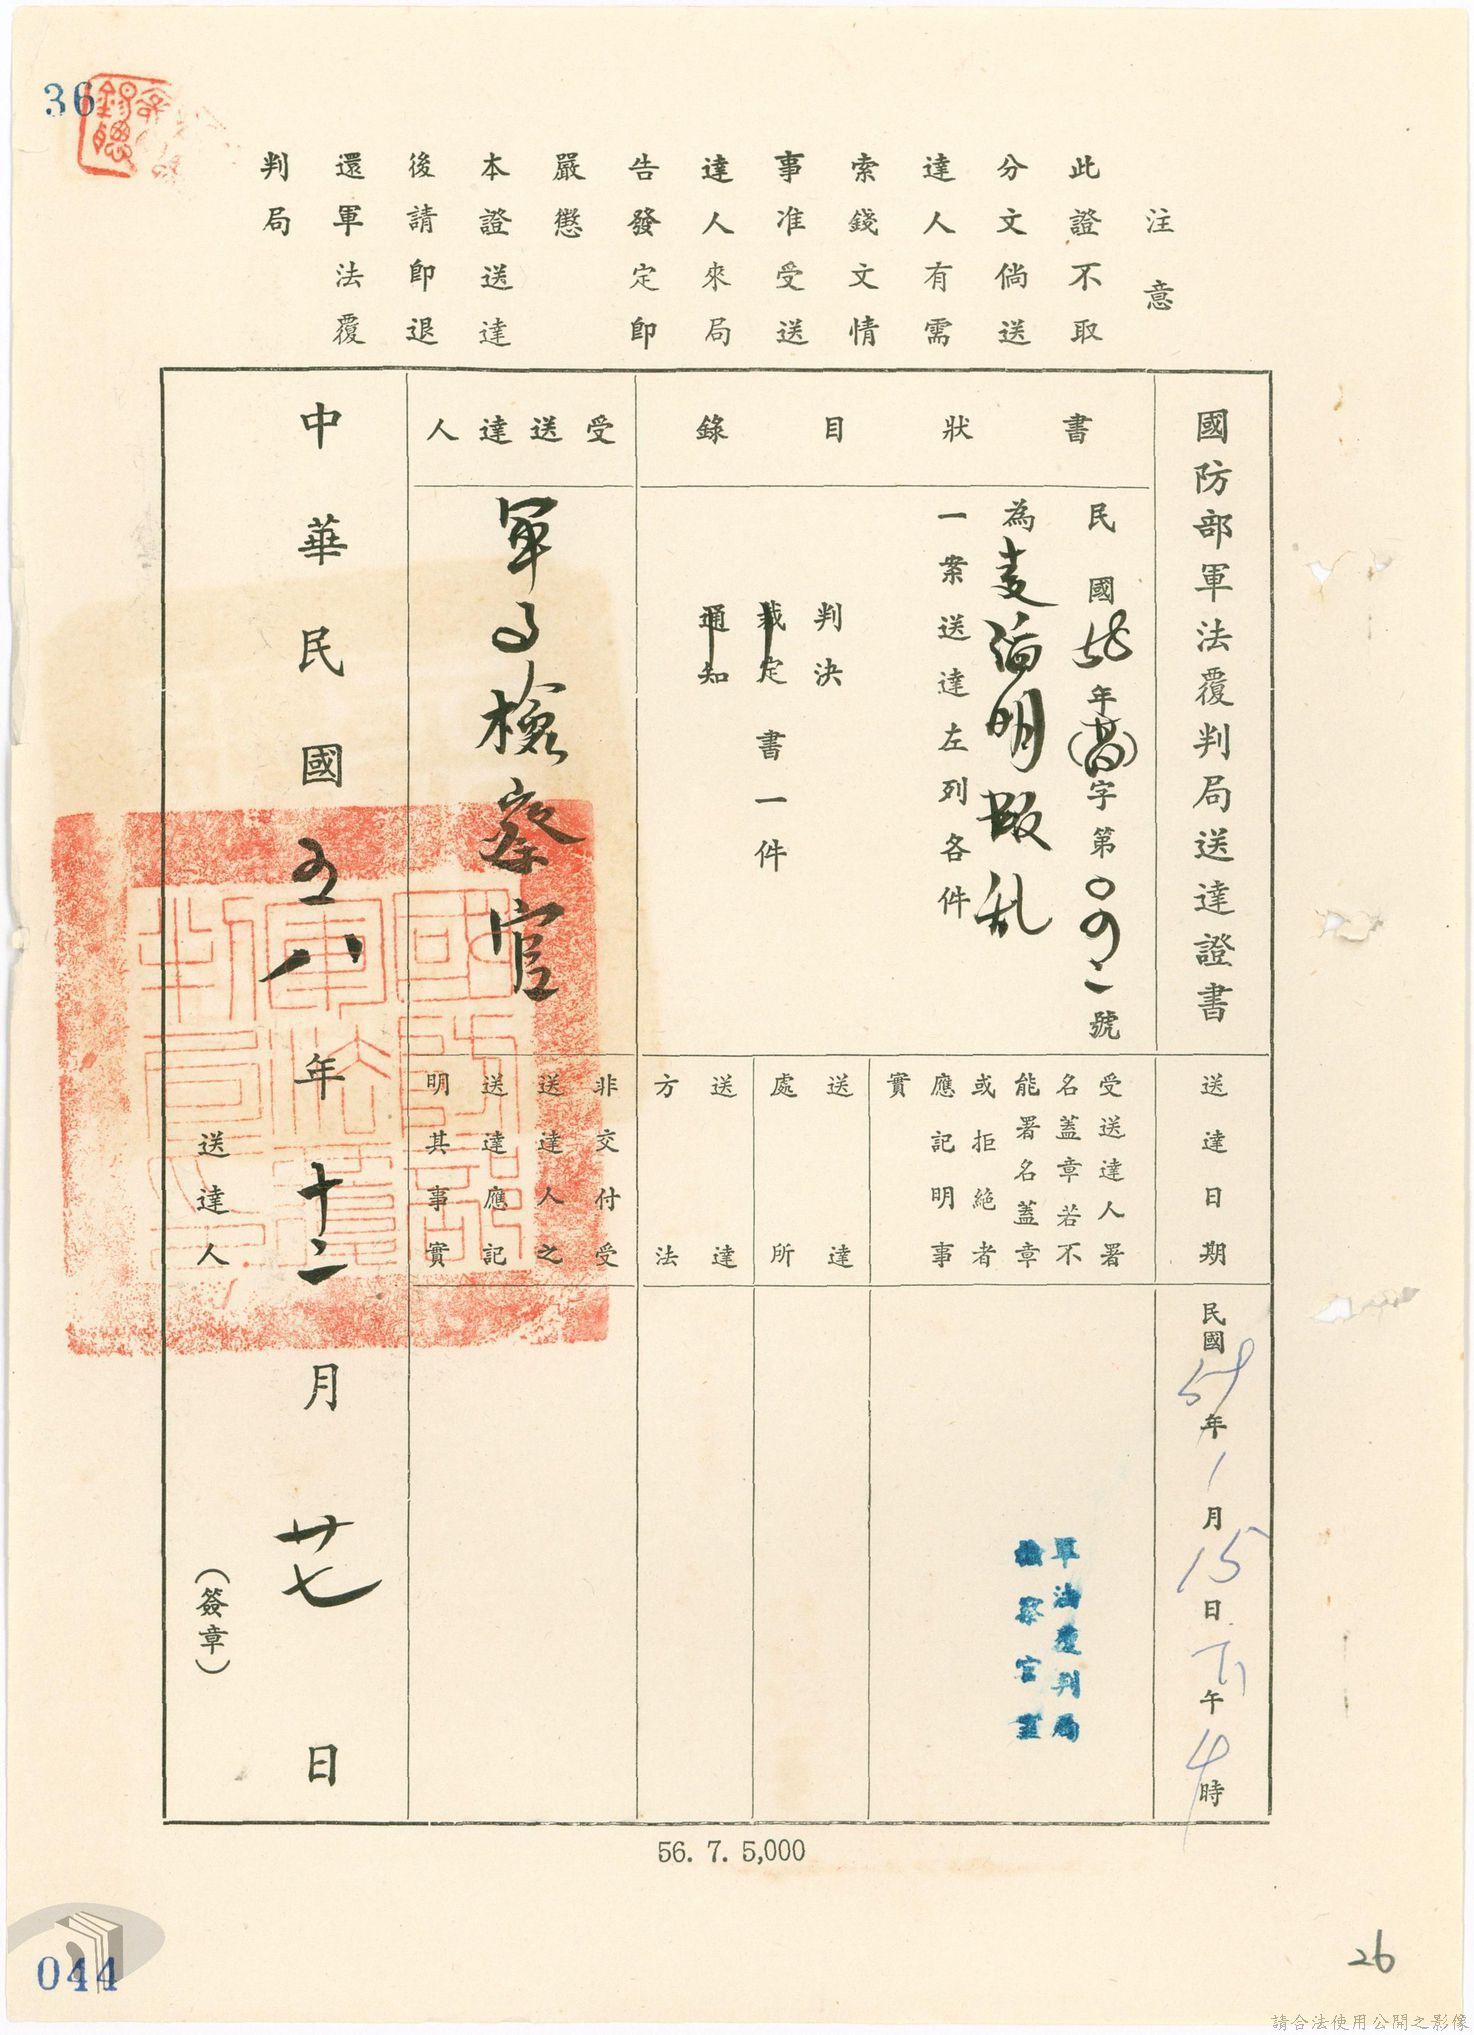 36
注意
此證不取
分文倘送
達人有需
索錢文情
事准受送
達人來局
告發定即
嚴懲
本證送達
後請即退
還軍法覆
判局
國防部軍法覆判局送達證書
書狀目錄
民國58年(高)字第〇四二號
為麦滔明叛乱
一案送達左列各件
判決
裁定書一件
通知
受送達人
軍事檢察官
送達日期
民國59年1月15日下午4時
受送達人署
名蓋章若不
能署名蓋章
或拒絕者
應記明事
實
軍法覆判局
檢察官室
送達
處所
送達
方法
非交付受
送達人之
送達應記
明其事實
中華民國五八年十二月廿七日
送達人
(簽章)
國防部
軍法覆
判局
56. 7. 5,000
044
26
請合法使用公開之影像